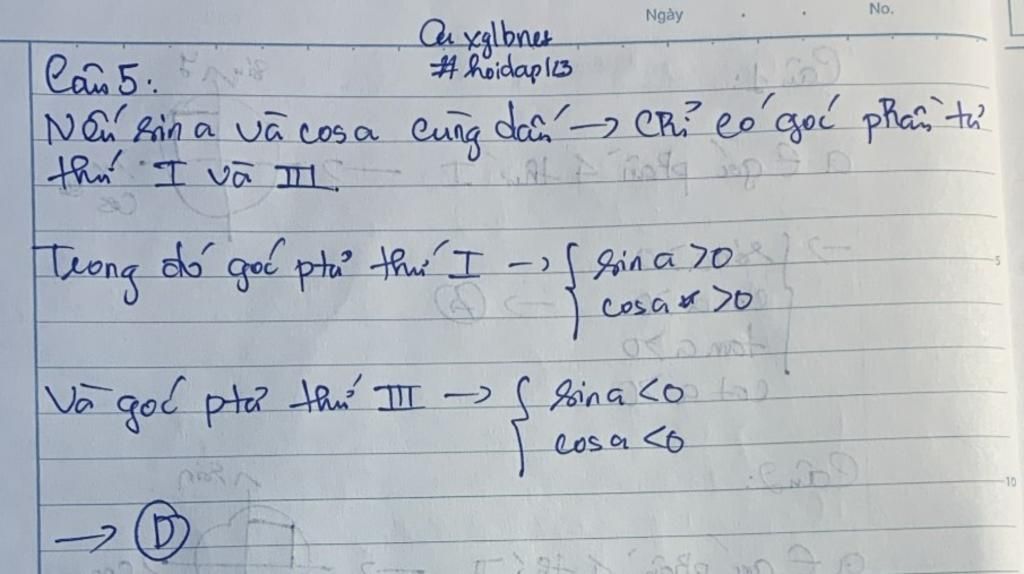 Ngày . . No.
#hoidap123
Câu 5:
Nếu sin a và cos a cùng dấu → chỉ có góc phần tư
thứ I và III.
Trong đó góc ptư thứ I → { sin a > 0
cos a > 0
5
Và góc ptư thứ III → { sin a < 0
cos a < 0
10
→ D